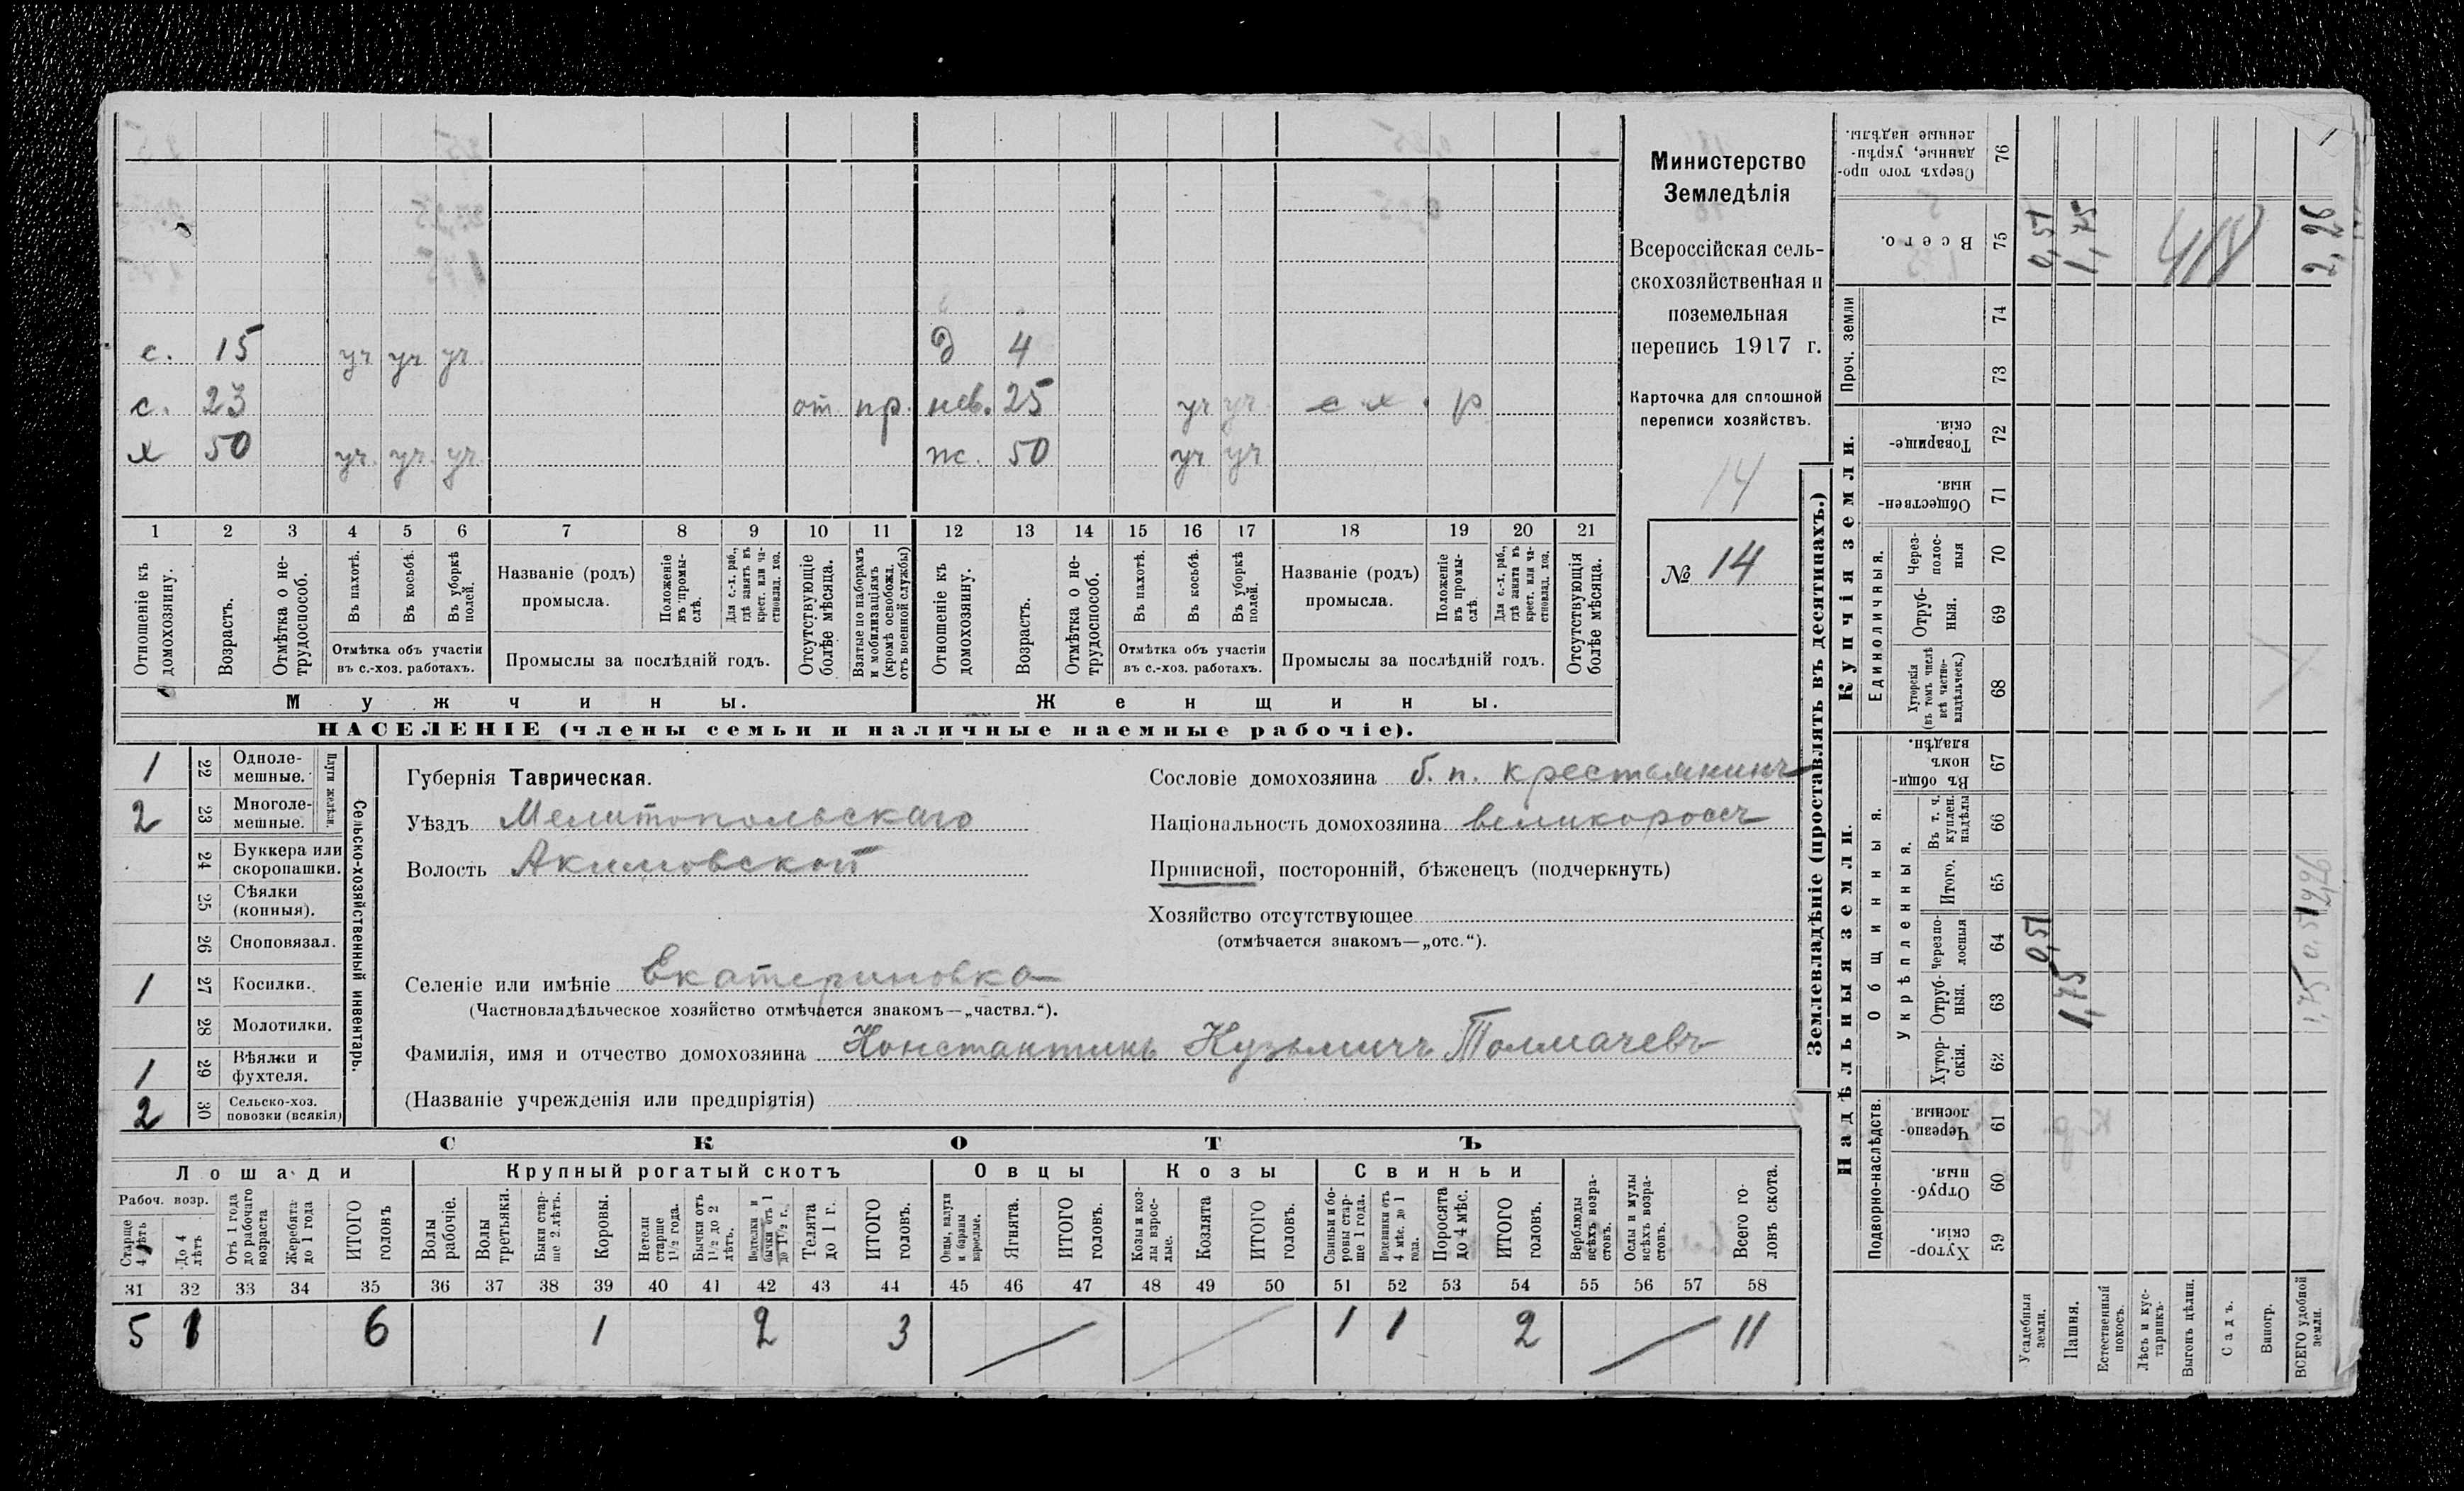 с. 15 уч уч уч д 4
с. 23 от. пр. нев. 25 уч уч с. х. р
х 50 уч. уч. уч. ж. 50 уч уч
1 2 3 4 5 6 7 8 9 10 11 12 13 14 15 16 17 18 19 20 21
Отношеніе къ домохозяину.
Возрастъ.
Отмѣтка о не-трудоспособ.
Въ пахотѣ.
Въ косьбѣ.
Въ уборкѣ полей.
Отмѣтка объ участіи
въ с.-хоз. работахъ.
Названіе (родъ)
промысла.
Положеніе въ промы-слѣ.
Для с.-х. раб., гдѣ занятъ въ крест. или ча-стновлад. хоз.
Промыслы за послѣдній годъ.
Отсутствующіе болѣе мѣсяца.
Взятые по наборамъ и мобилизаціямъ (кромѣ освобожд. отъ военной службы)
Отношеніе къ домохозяину.
Возрастъ.
Отмѣтка о не-трудоспособ.
Въ пахотѣ.
Въ косьбѣ.
Въ уборкѣ полей.
Отмѣтка объ участіи
въ с.-хоз. работахъ.
Названіе (родъ)
промысла.
Положеніе въ промы-слѣ.
Для с.-х. раб., гдѣ занята въ крест. или ча-стновлад. хоз.
Промыслы за послѣдній годъ.
Отсутствующія болѣе мѣсяца.
Мужчины. Женщины.
НАСЕЛЕНІЕ (члены семьи и наличные наемные рабочіе).
Министерство
Земледѣлія
Всероссійская сель-
скохозяйственная и
поземельная
перепись 1917 г.
Карточка для сплошной
переписи хозяйствъ.
14
№ 14
1 22 Одноле-мешные.
2 23 Многоле-мешные.
Плуги желѣзн.
24 Буккера или скоропашки.
25 Сѣялки (конныя).
26 Сноповязал.
1 27 Косилки.
28 Молотилки.
1 29 Вѣялки и фухтеля.
2 30 Сельско-хоз. повозки (всякія)
Сельско-хозяйственный инвентарь.
Губернія Таврическая.
Уѣздъ Мелитопольскаго
Волость Акимовской
Сословіе домохозяина б. п. крестьянинъ
Національность домохозяина великороссъ
Приписной, посторонній, бѣженецъ (подчеркнуть)
Хозяйство отсутствующее
(отмѣчается знакомъ—„отс.“).
Селеніе или имѣніе Екатериновка
(Частновладѣльческое хозяйство отмѣчается знакомъ—„частвл.“).
Фамилія, имя и отчество домохозяина Константинъ Кузьмичъ Толмачевъ
(Названіе учрежденія или предпріятія)
СКОТЪ
Лошади Крупный рогатый скотъ Овцы Козы Свиньи
Рабоч. возр.
Старше 4 лѣтъ
До 4 лѣтъ
Отъ 1 года до рабочаго возраста
Жеребята до 1 года
ИТОГО головъ
Волы рабочіе.
Волы третьяки.
Быки стар-ше 2 лѣтъ.
Коровы.
Нетели старше 1½ года.
Бычки отъ 1½ до 2 лѣтъ.
бычки отъ 1 до 1½ г.
Телята до 1 г.
ИТОГО головъ.
Овцы, валухи и бараны взрослые.
Ягнята.
ИТОГО головъ.
Козы и коз-лы взрос-лые.
Козлята
ИТОГО головъ.
Свиньи и бо-ровы стар-ше 1 года.
Подсвинки отъ 4 мѣс. до 1 года.
Поросята до 4 мѣс.
ИТОГО головъ.
Верблюды всѣхъ возра-стовъ.
Ослы и мулы всѣхъ возра-стовъ.
Всего го-ловъ скота.
31 32 33 34 35 36 37 38 39 40 41 42 43 44 45 46 47 48 49 50 51 52 53 54 55 56 57 58
5 1 6 1 2 3 1 1 2 11
Землевладѣніе (проставлять въ десятинахъ.)
Надѣльныя земли. Купчія земли. Проч. земли
Подворно-наслѣдств.
Общинныя.
Укрѣпленныя.
Единоличныя.
Сверхъ того про-данные, укрѣп-ленные надѣлы. 76
Всего. 75 0,51 1,75 2,26
74
73
Товарище-скія. 72
Обществен-ныя. 71
Через-полос-ныя 70
Отруб-ныя. 69
Хуторскія (въ томъ числѣ всѣ частно-владѣльческ.) 68
Въ общи-номъ владѣн. 67
Въ т. ч. куплен. надѣлы 66
Итого. 65
Черезпо-лосныя 64 0,51
Отруб-ныя. 63 1,75
Хутор-скія. 62
Черезпо-лосныя 61
Отруб-ныя. 60
Хутор-скія. 59
Усадебныя земли.
Пашня.
Естественный покосъ.
Лѣсъ и кус-тарникъ.
Выгонъ цѣлин.
Садъ.
Виногр.
ВСЕГО удобной земли.